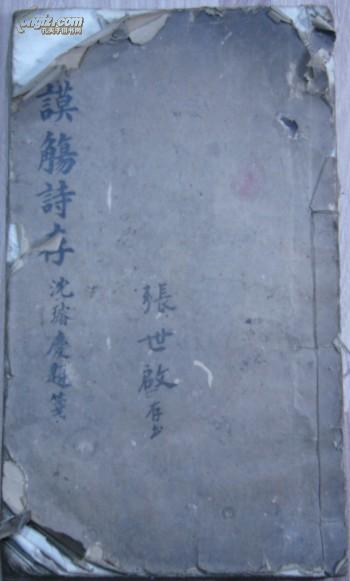 謨觴詩存
沈璿慶題箋
張世啟存书
孔夫子旧书网